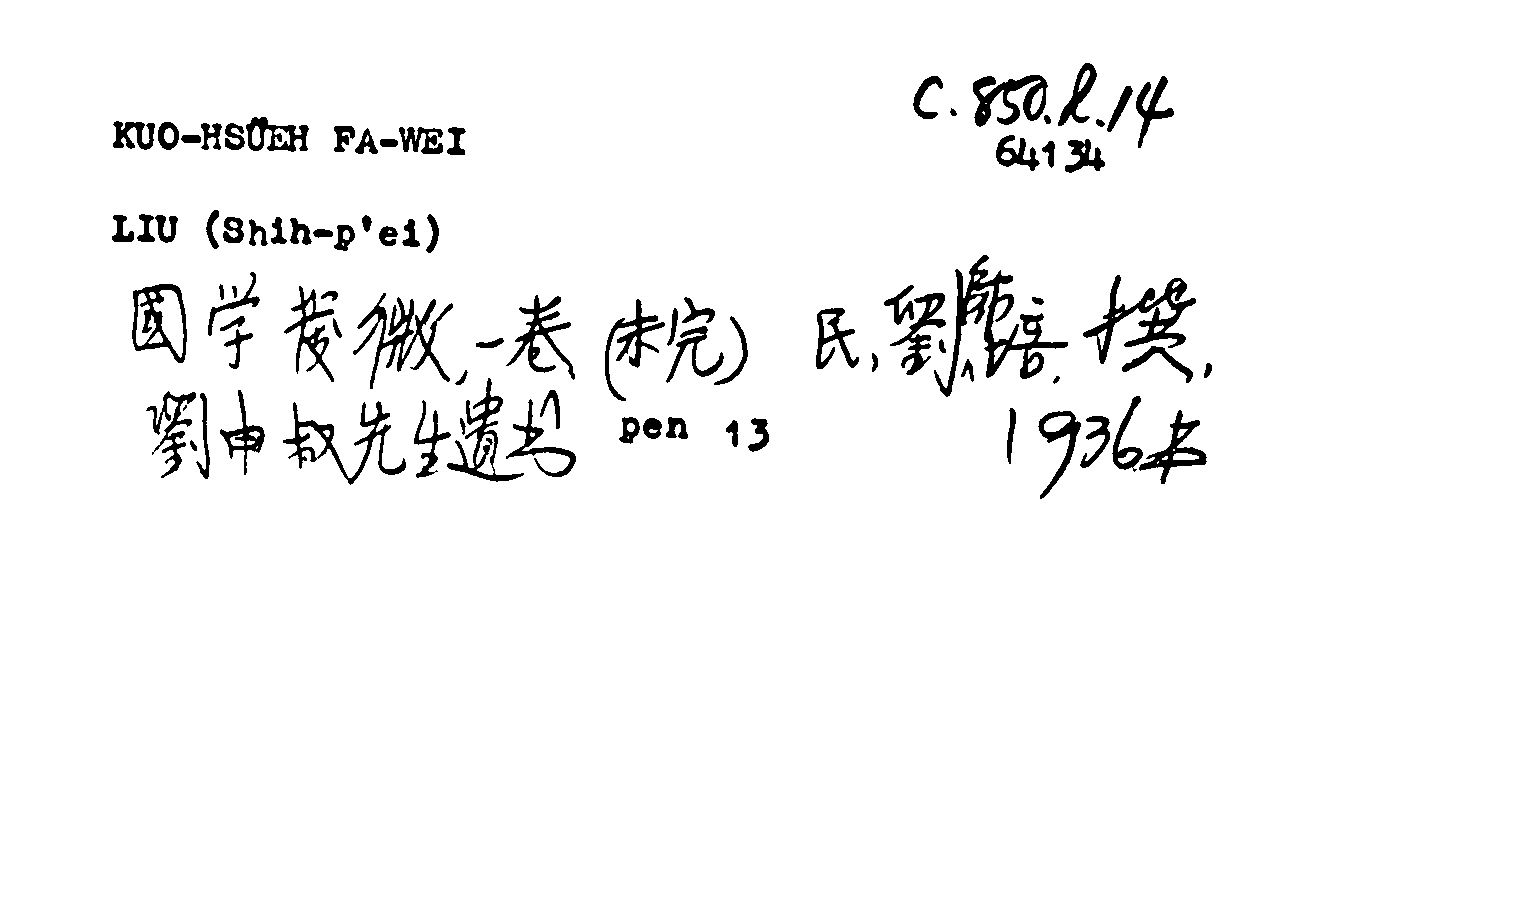 C.850.l.14
64134
KUO-HSÜEH FA-WEI
LIU (Shih-p'ei)
國学發微,一卷(未完) 民,劉師培.撰,
劉申叔先生遺书 pen 13 1936本